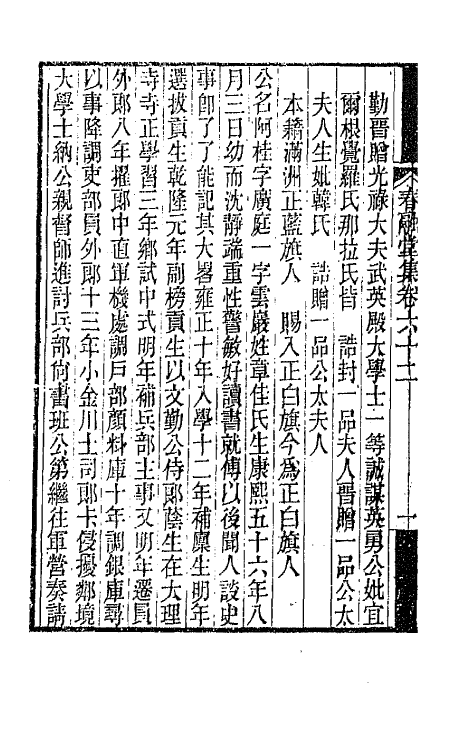 春融堂集卷六十二
一
勤晉贈光祿大夫武英殿大學士一等誠謀英勇公妣宜
爾根覺羅氏那拉氏皆　誥封一品夫人晉贈一品公太
夫人生妣韓氏　誥贈一品公太夫人
本籍滿洲正藍旗人　賜入正白旗今爲正白旗人
公名阿桂字廣庭一字雲巖姓章佳氏生康熙五十六年八
月三日幼而沈靜端重性警敏好讀書就傅以後聞人談史
事卽了了能記其大畧雍正十年入學十一年補廩生明年
選拔貢生乾隆元年副榜貢生以文勤公侍郎蔭生在大理
寺寺正學習三年鄉試中式明年補兵部主事又明年遷員
外郎八年擢郎中直軍機處調戶部顏料庫十年調銀庫尋
以事降調吏部員外郎十三年小金川土司郎卡侵擾鄰境
大學士納公親督師進討兵部尙書班公第繼往軍營奏請